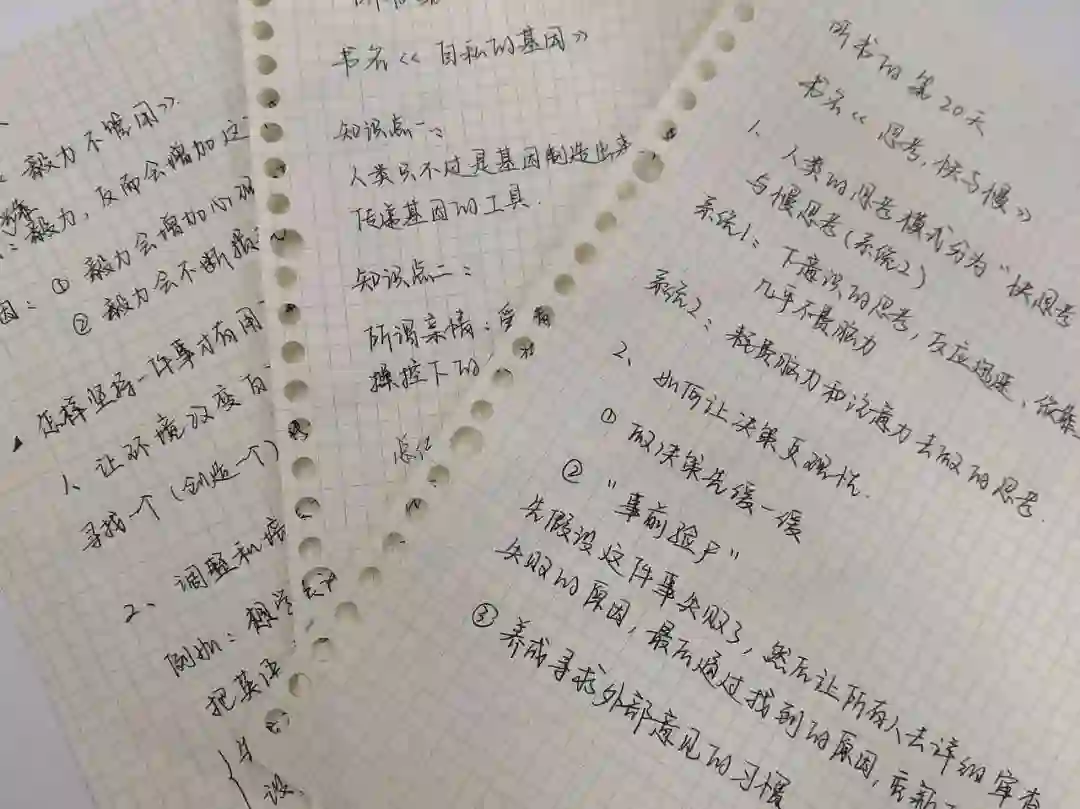 《毅力不管用》
毅力,反而会增加这
① 毅力会增加心理
因:
② 毅力会不断损
怎样坚持一件事才有用
1、让环境改变自
寻找一个(创造一个)
2、调整和
例如:想学会计
把英语
设
书名《自私的基因》
知识点一:
人类只不过是基因制造出来
传递基因的工具.
知识点二:
所谓亲情:受
操控下的
总结
听书的第20天
书名《思考,快与慢》
1、人类的思考模式分为“快思考
与慢思考(系统2)
系统1:下意识的思考,反应迅速、依靠
几乎不费脑力
系统2:耗费脑力和注意力去做的思考.
2、如何让决策更理性.
① 做决策先缓一缓
② “事前验尸”
先假设这件事失败了,然后让所有人去详细审查
失败的原因,最后通过找到的原因,重新
③ 养成寻求外部意见的习惯